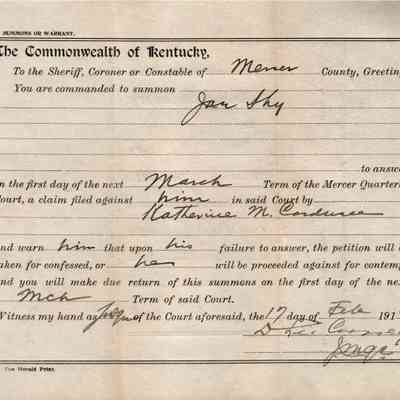 SUMMONS OR WARRANT.
The Commonwealth of Kentucky,
To the Sheriff, Coroner or Constable of Mercer County, Greetin
You are commanded to summon
Jan Shy
to answe
n the first day of the next March Term of the Mercer Quarter
Court, a claim filed against him in said Court by
Katherine M.
nd warn him that upon his failure to answer, the petition will
aken for confessed, or he will be proceeded against for contemp
nd you will make due return of this summons on the first day of the ne
Mch Term of said Court.
Witness my hand as of the Court aforesaid, the 17 day of Feb 191
The Herald Print.